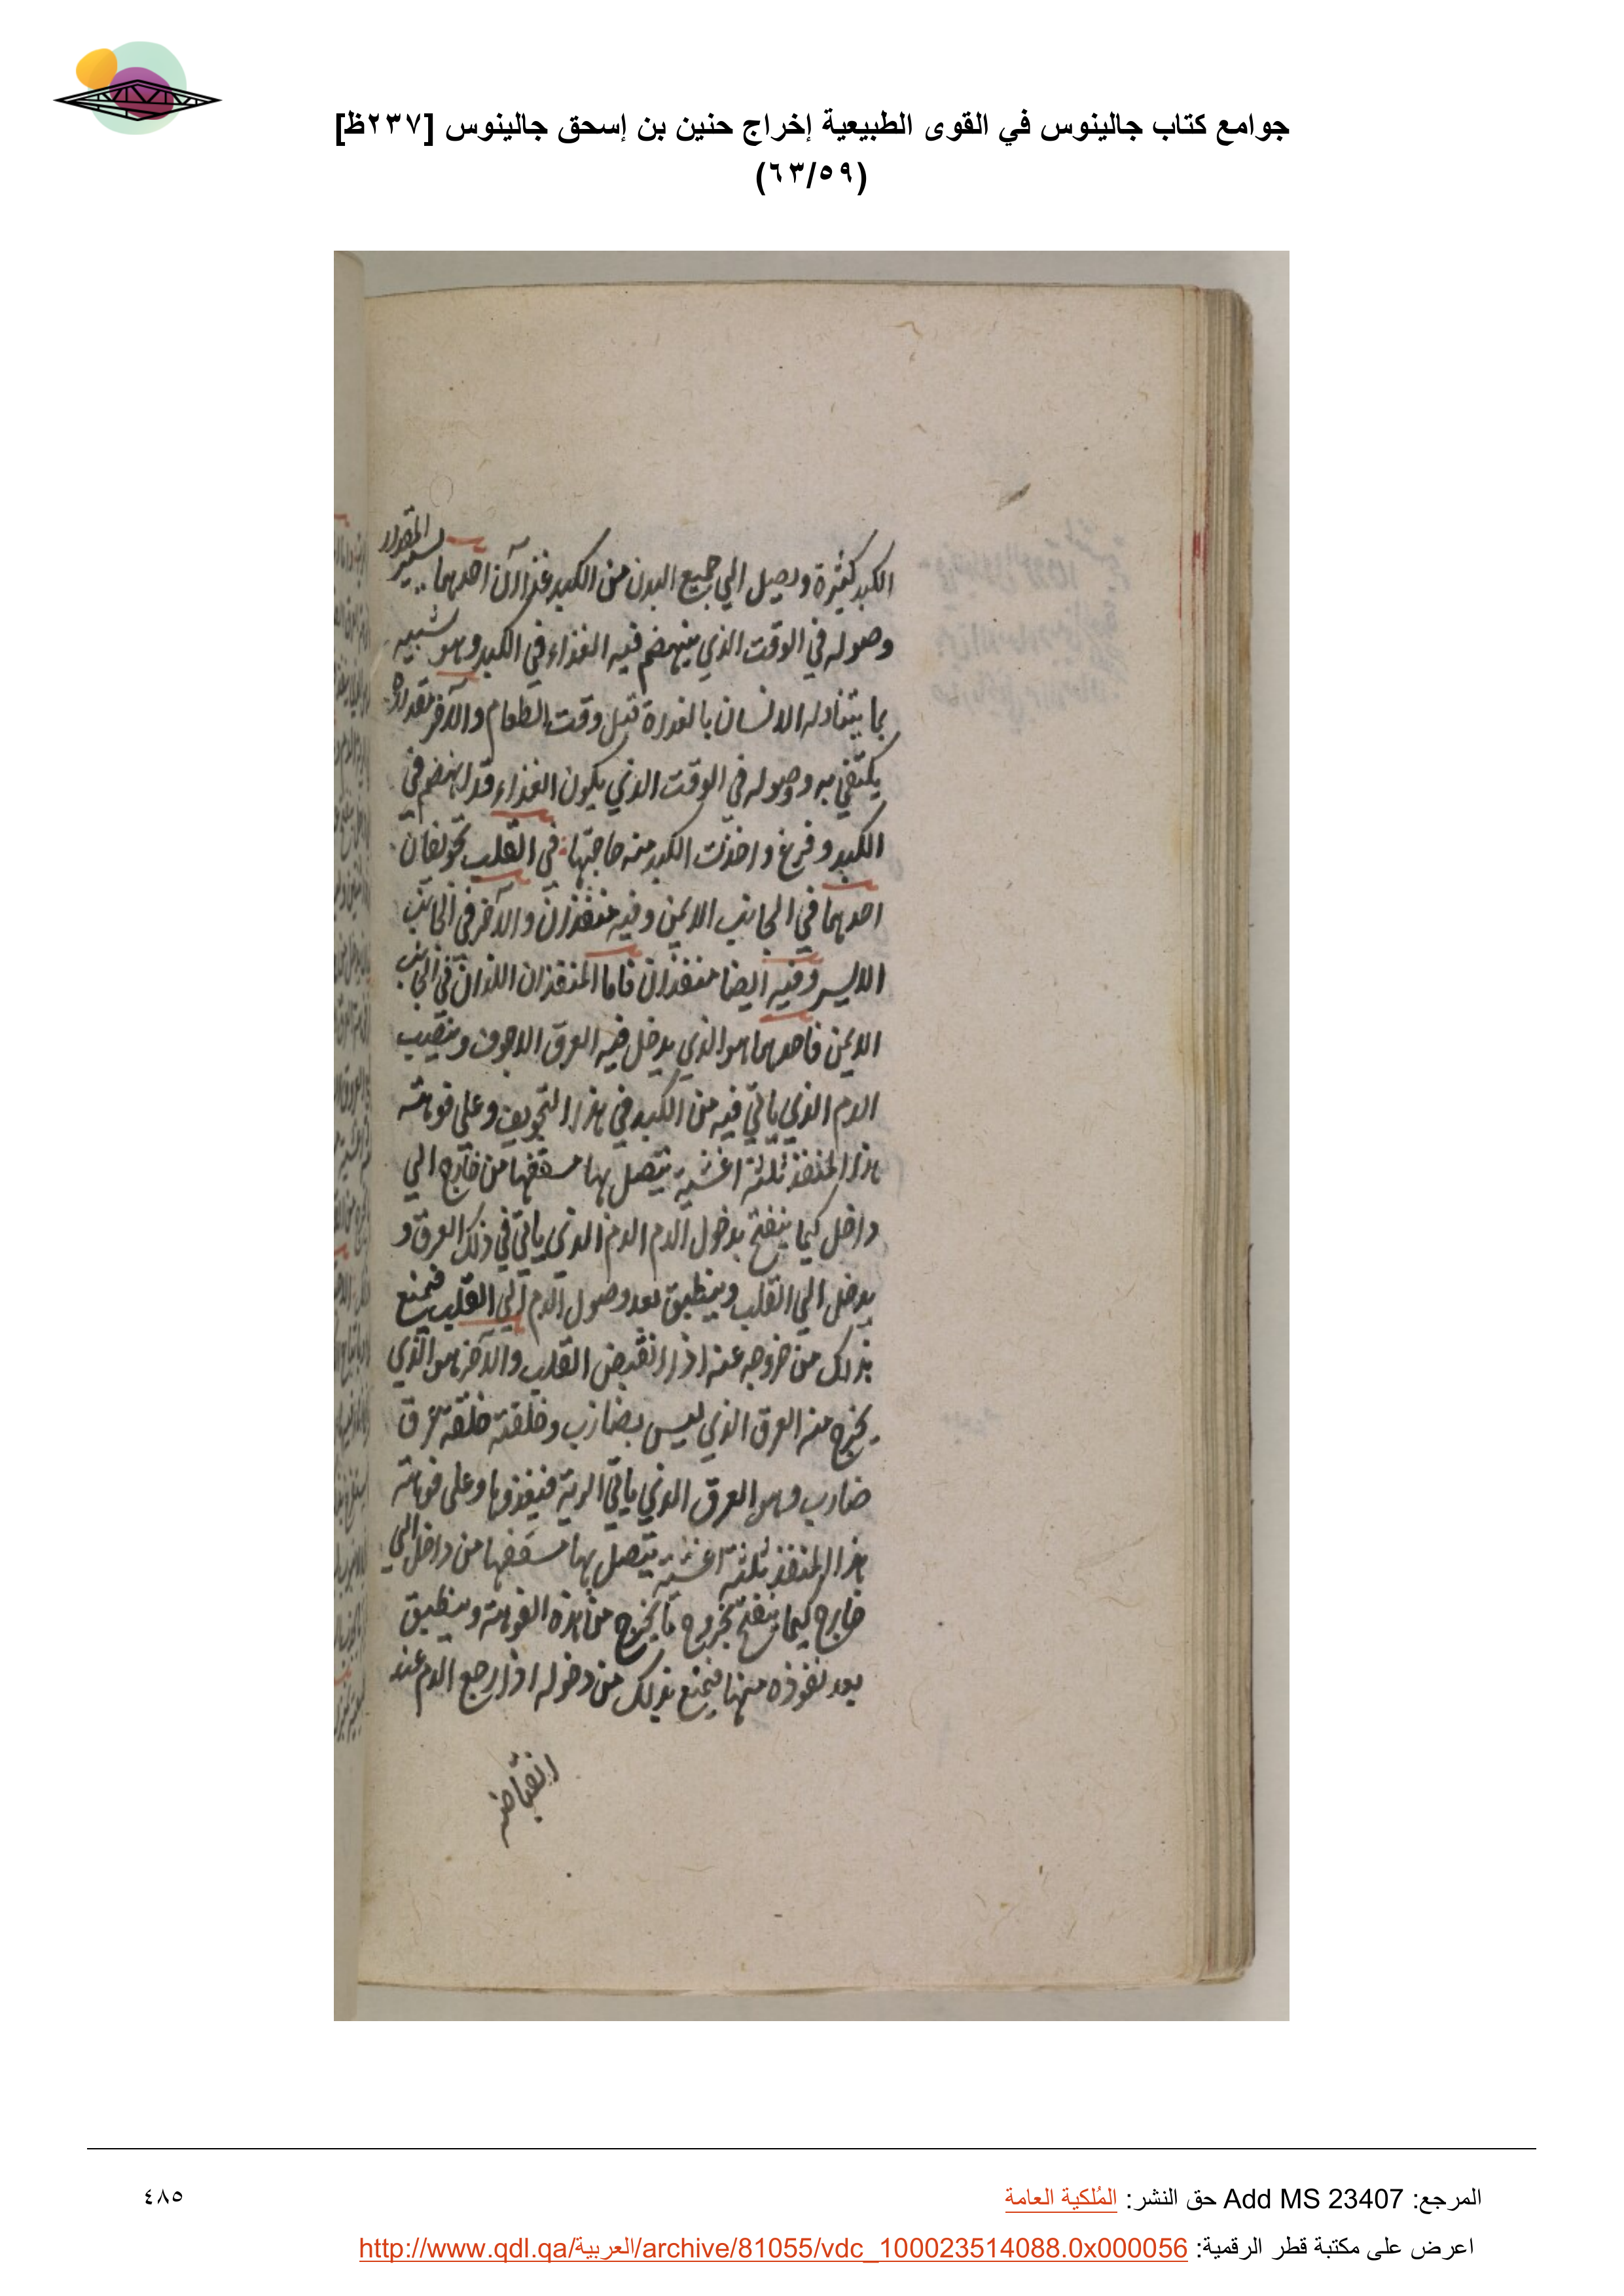 جوامع كتاب جالينوس في القوى الطبيعية إخراج حنين بن إسحق جالينوس [٢٣٧ظ]
(٦٣/٥٩)
الكبد كثيرة ويصل الي جميع البدن من الكبد غذاآن احدهما يسير المقدار
وصوله في الوقت الذي ينهضم فيه الغذاء في الكبد وهو شبيه
بما يتناوله الانسان بالغداة قبل وقت الطعام والآخر بقدر ما
يكتفي به وصوله في الوقت الذي يكون الغذاء قد انهضم في
الكبد وفرغ واخذت الكبد منه حاجتها في القلب تجويفان
احدهما في الجانب الايمن وفيه منفذان والآخر في الجانب
الايسر وفيه ايضا منفذان فاما المنفذان اللذان في الجانب
الايمن فاحدهما هو الذي يدخل فيه العرق الاجوف وينصب
الدم الذي ياتي فيه من الكبد في هذا التجويف وعلى فوهته
هذا المنفذ ثلثة اغشية يتصل بها من خارج الي
داخل كيما ينفتح بدخول الدم الدم الذي ياتي في ذلك العرق و
يدخل الي القلب وينطبق بعد وصول الدم الي القلب فيمنع
بذلك من خروجه عنه اذا انقبض القلب والآخر هو الذي
يخرج منه العرق الذي ليس بضارب وخلقته خلقة عرق
ضارب وهو العرق الذي ياتي الرية فيغذوها وعلى فوهته
هذا المنفذ ثلثة اغشية يتصل بها من داخل الي
خارج كيما ينفتح بخروج ما يخرج من هذه الفوهة وينطبق
بعد نفوذه منها فيمنع بذلك من دخوله اذا رجع الدم عند
انقباضه
المرجع: Add MS 23407 حق النشر: المُلكية العامة
٤٨٥
اعرض على مكتبة قطر الرقمية: http://www.qdl.qa/العربية/archive/81055/vdc_100023514088.0x000056